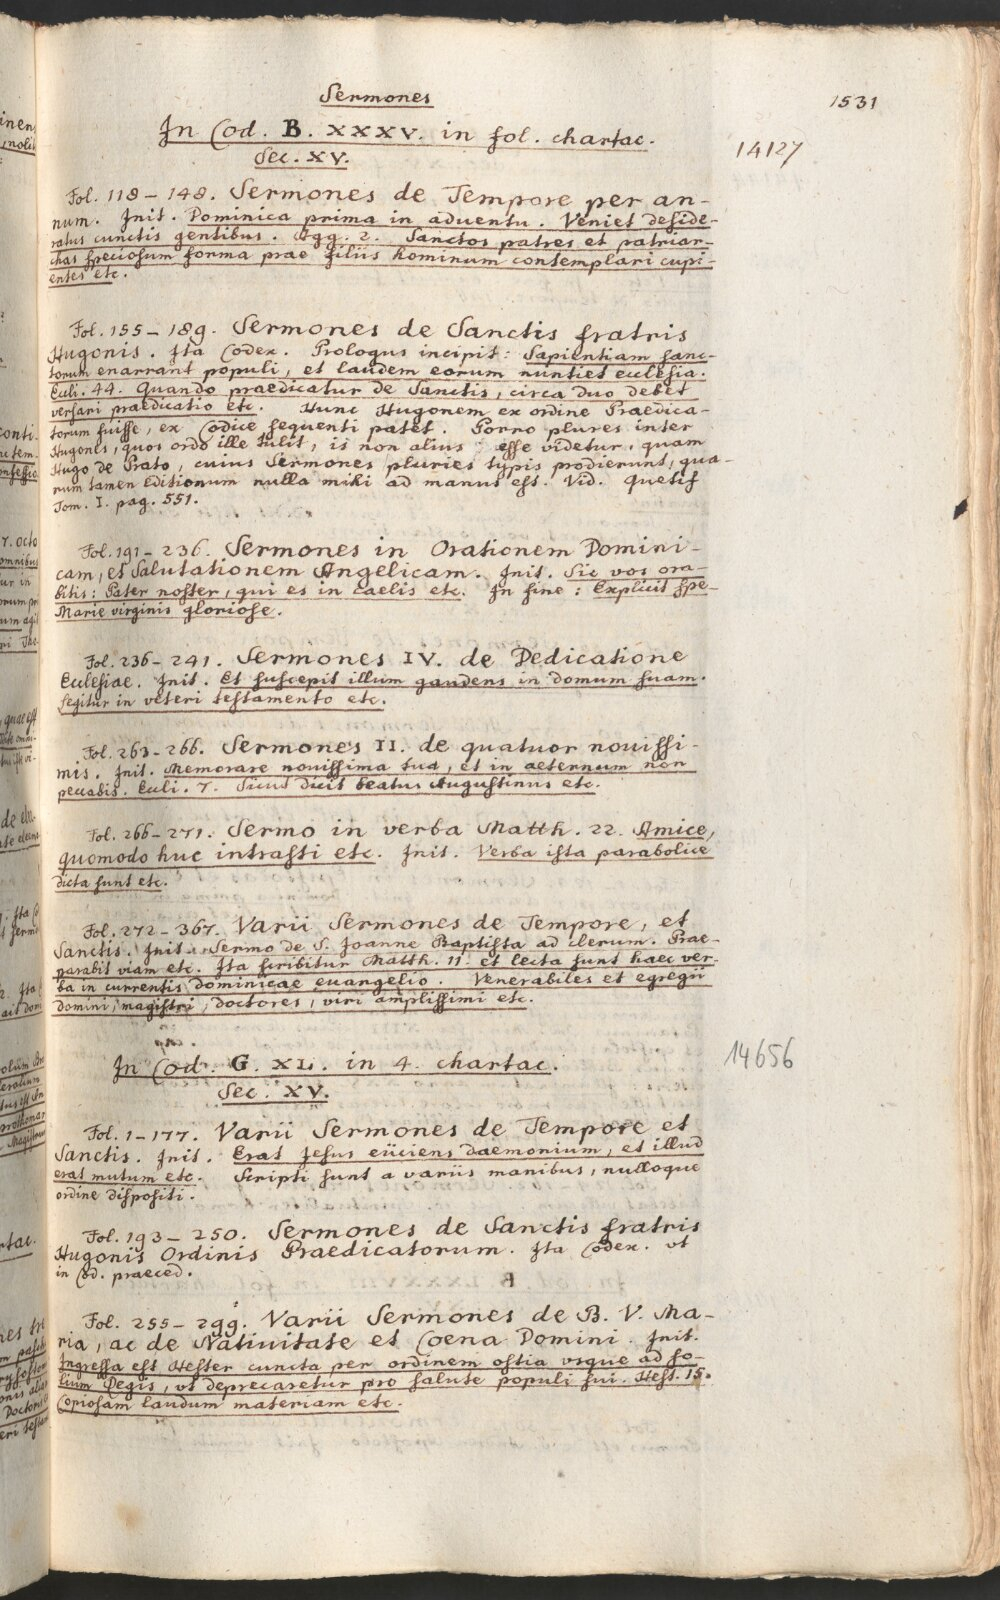 Sermones
1531
In Cod. B. XXXV. in fol. chartac.
14127
Sec. XV.
Fol. 118 – 148. Sermones de Tempore per an-
num. Init. Dominica prima in aduentu. Veniet deside-
ratus cunctis gentibus. Agg. 2. Sanctos patres et patriar-
chas speciosum forma prae filiis hominum contemplari cupi-
entes etc.
Fol. 155 – 189. Sermones de Sanctis fratris
Hugonis. Ita Codex. Prologus incipit: Sapientiam sanc-
torum enarrant populi, et laudem eorum nuntiet ecclesia.
Eccli. 44. Quando praedicatur de Sanctis, circa duo debet
versari praedicatio etc. Hunc Hugonem ex ordine Praedica-
torum fuisse, ex Codice sequenti patet. Porro plures inter
Hugones, quos ordo ille tulit, is non alius esse videtur, quam
Hugo de Prato, cuius Sermones pluries typis prodierunt, qua-
rum tamen Editionum nulla mihi ad manus est. Vid. Quetif
Tom. I. pag. 551.
Fol. 191 – 236. Sermones in Orationem Domini-
cam, et Salutationem Angelicam. Init. Sic vos ora-
bitis: Pater noster, qui es in caelis etc. In fine: Explicit spe-
Marie virginis gloriose.
Fol. 236 – 241. Sermones IV. de Dedicatione
Ecclesiae. Init. Et suscepit illum gaudens in domum suam.
Legitur in veteri testamento etc.
Fol. 263 – 266. Sermones II. de quatuor nouissi-
mis. Init. Memorare nouissima tua, et in aeternum non
peccabis. Eccli. 7. Sicut dicit beatus Augustinus etc.
Fol. 266 – 271. Sermo in verba Matth. 22. Amice,
quomodo huc intrasti etc. Init. Verba ista parabolice
dicta sunt etc.
Fol. 272 – 367. Varii Sermones de Tempore, et
Sanctis. Init. Sermo de S. Joanne Baptista ad clerum. Prae-
parabit viam etc. Ita scribitur Matth. 11. et lecta sunt haec ver-
ba in currentis dominicae euangelio. Venerabiles et egregii
domini, magistri, doctores, viri amplissimi etc.
In Cod. G. XL. in 4. chartac.
14656
Sec. XV.
Fol. 1 – 177. Varii Sermones de Tempore et
Sanctis. Init. Erat Jesus eiiciens daemonium, et illud
erat mutum etc. Scripti sunt a variis manibus, nulloque
ordine dispositi.
Fol. 193 – 250. Sermones de Sanctis fratris
Hugonis Ordinis Praedicatorum. Ita Codex. vt
in Cod. praeced.
Fol. 255 – 299. Varii Sermones de B. V. Ma-
ria, ac de Natiuitate et Coena Domini. Init.
Ingressa est Hester cuncta per ordinem ostia vsque ad so-
lium Regis, vt deprecaretur pro salute populi sui. Hest. 15.
Copiosam laudum materiam etc.